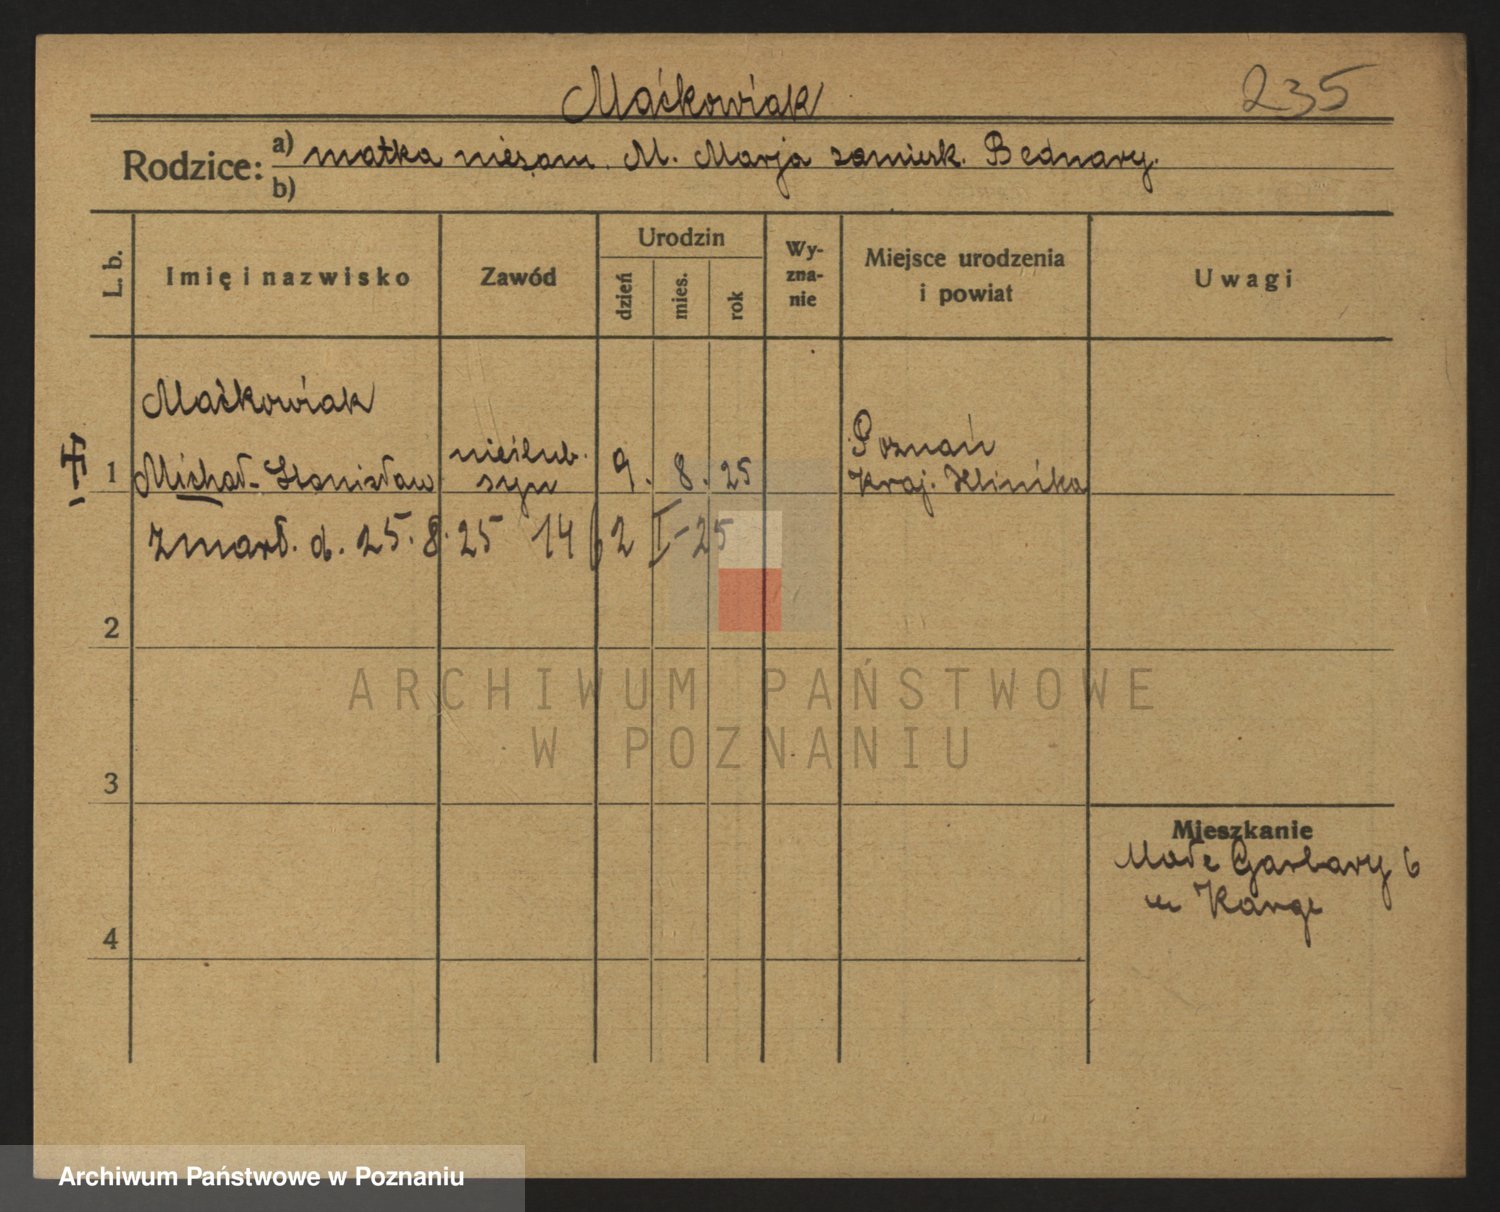 Maćkowiak
235
Rodzice: a) matka niezam. M. Marja zamieszk. Bednary.
b)
L. b.
Imię i nazwisko
Zawód
Urodzin
dzień
mies.
rok
Wy-
zna-
nie
Miejsce urodzenia
i powiat
Uwagi
Maćkowiak
1 Michał-Stanisław
nieślub.
syn
9. 8. 25
Poznań
Kraj. Klinika
zmarł. d. 25. 8. 25 1462 I-25
2
3
4
Mieszkanie
Małe Garbary 6
u Karge
ARCHIWUM PAŃSTWOWE
W POZNANIU
Archiwum Państwowe w Poznaniu